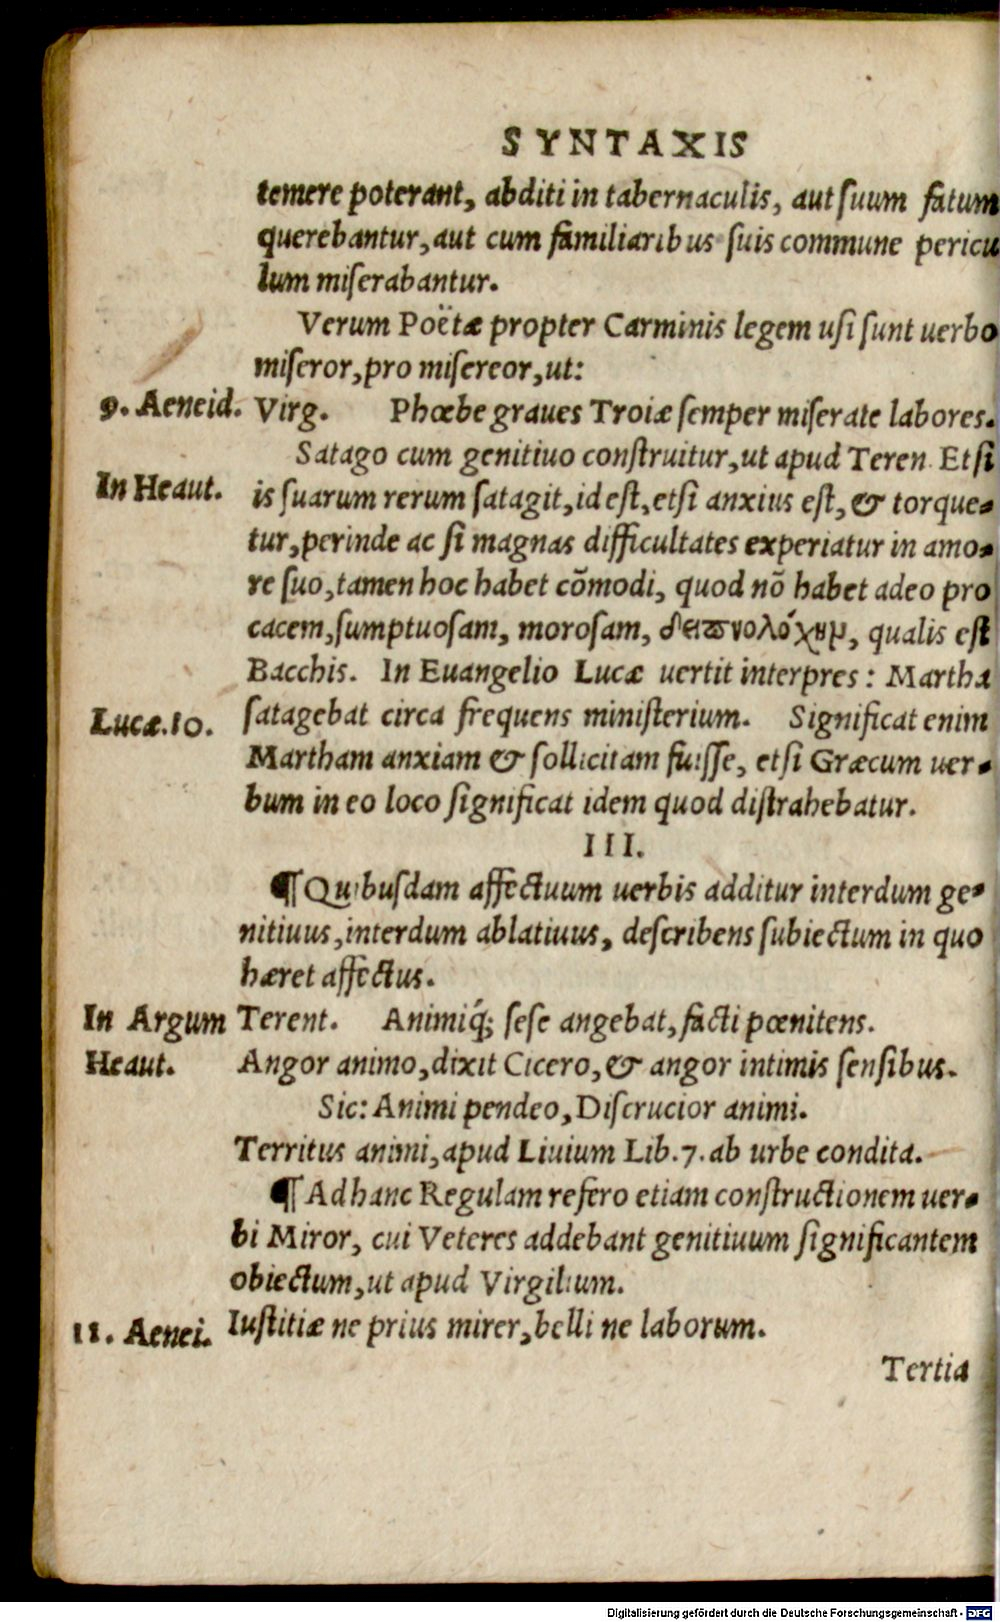 SYNTAXIS
temere poterant, abditi in tabernaculis, aut suum fatum
querebantur, aut cum familiaribus suis commune pericu
lum miserabantur.
Verum Poëtæ propter Carminis legem usi sunt uerbo
miseror, pro misereor, ut:
9. Aeneid. Virg. Phœbe graues Troiæ semper miserate labores.
Satago cum genitiuo construitur, ut apud Teren. Etsi
In Heaut. is suarum rerum satagit, id est, etsi anxius est, & torque-
tur, perinde ac si magnas difficultates experiatur in amo-
re suo, tamen hoc habet cõmodi, quod nõ habet adeo pro
cacem, sumptuosam, morosam, δειπνολόχην, qualis est
Bacchis. In Euangelio Lucæ uertit interpres: Martha
Lucæ.10. satagebat circa frequens ministerium. Significat enim
Martham anxiam & sollicitam fuisse, etsi Græcum uer-
bum in eo loco significat idem quod distrahebatur.
III.
¶ Quibusdam affectuum uerbis additur interdum ge-
nitiuus, interdum ablatiuus, describens subiectum in quo
hæret affectus.
In Argum Terent. Animiq́; sese angebat, facti pœnitens.
Heaut. Angor animo, dixit Cicero, & angor intimis sensibus.
Sic: Animi pendeo, Discrucior animi.
Territus animi, apud Liuium Lib. 7. ab urbe condita.
¶ Ad hanc Regulam refero etiam constructionem uer-
bi Miror, cui Veteres addebant genitiuum significantem
obiectum, ut apud Virgilium.
11. Aenei. Iustitiæ ne prius mirer, belli ne laborum.
Tertia
Digitalisierung gefördert durch die Deutsche Forschungsgemeinschaft - DFG